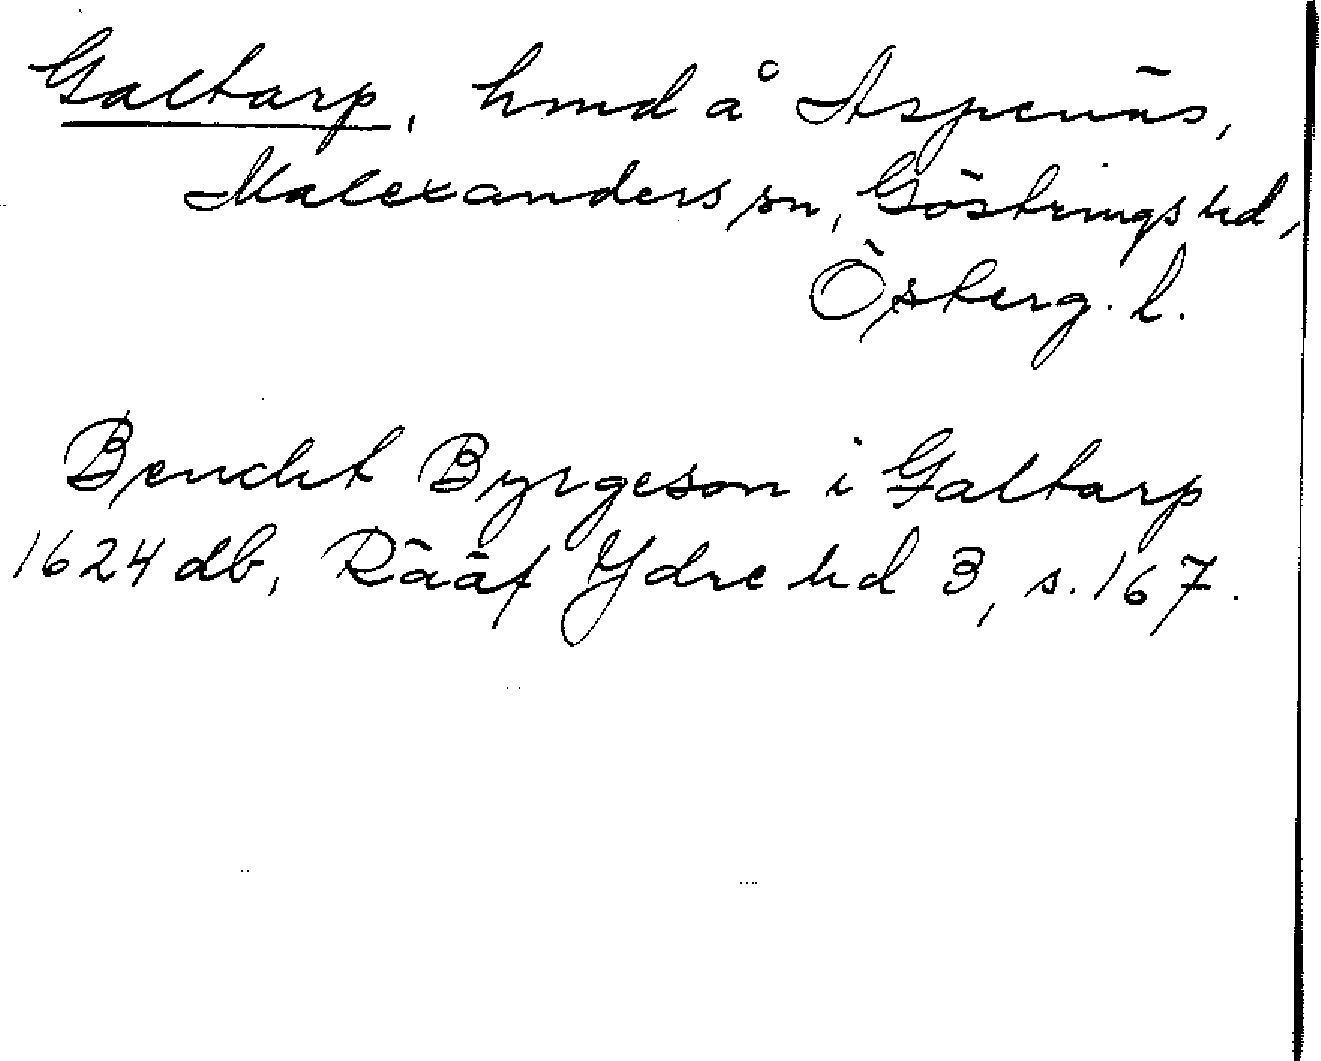 Galtarp, hmd å Aspenäs,
Malexanders sn, Göstrings hd,
Österg. l.
Bendht Byrgeson i Galtarp
1624 db, Rääf Ydre hd 3, s. 167.